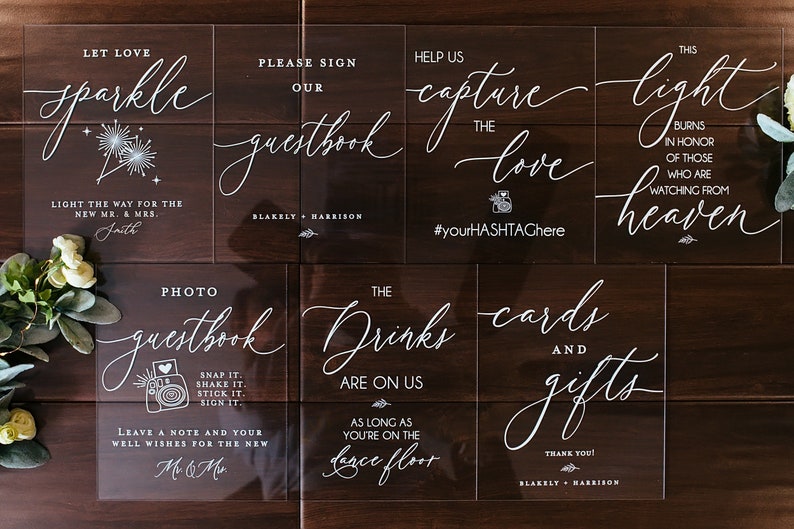 LET LOVE
sparkle
LIGHT THE WAY FOR THE
NEW MR. & MRS.
Smith
PLEASE SIGN
OUR
guestbook
BLAKELY + HARRISON
HELP US
capture
THE
love
#yourHASHTAGhere
THIS
light
BURNS
IN HONOR
OF THOSE
WHO ARE
WATCHING FROM
heaven
PHOTO
guestbook
SNAP IT.
SHAKE IT.
STICK IT.
SIGN IT.
LEAVE A NOTE AND YOUR
WELL WISHES FOR THE NEW
Mr. & Mrs.
THE
Drinks
ARE ON US
AS LONG AS
YOU'RE ON THE
dance floor
cards
AND
gifts
THANK YOU!
BLAKELY + HARRISON